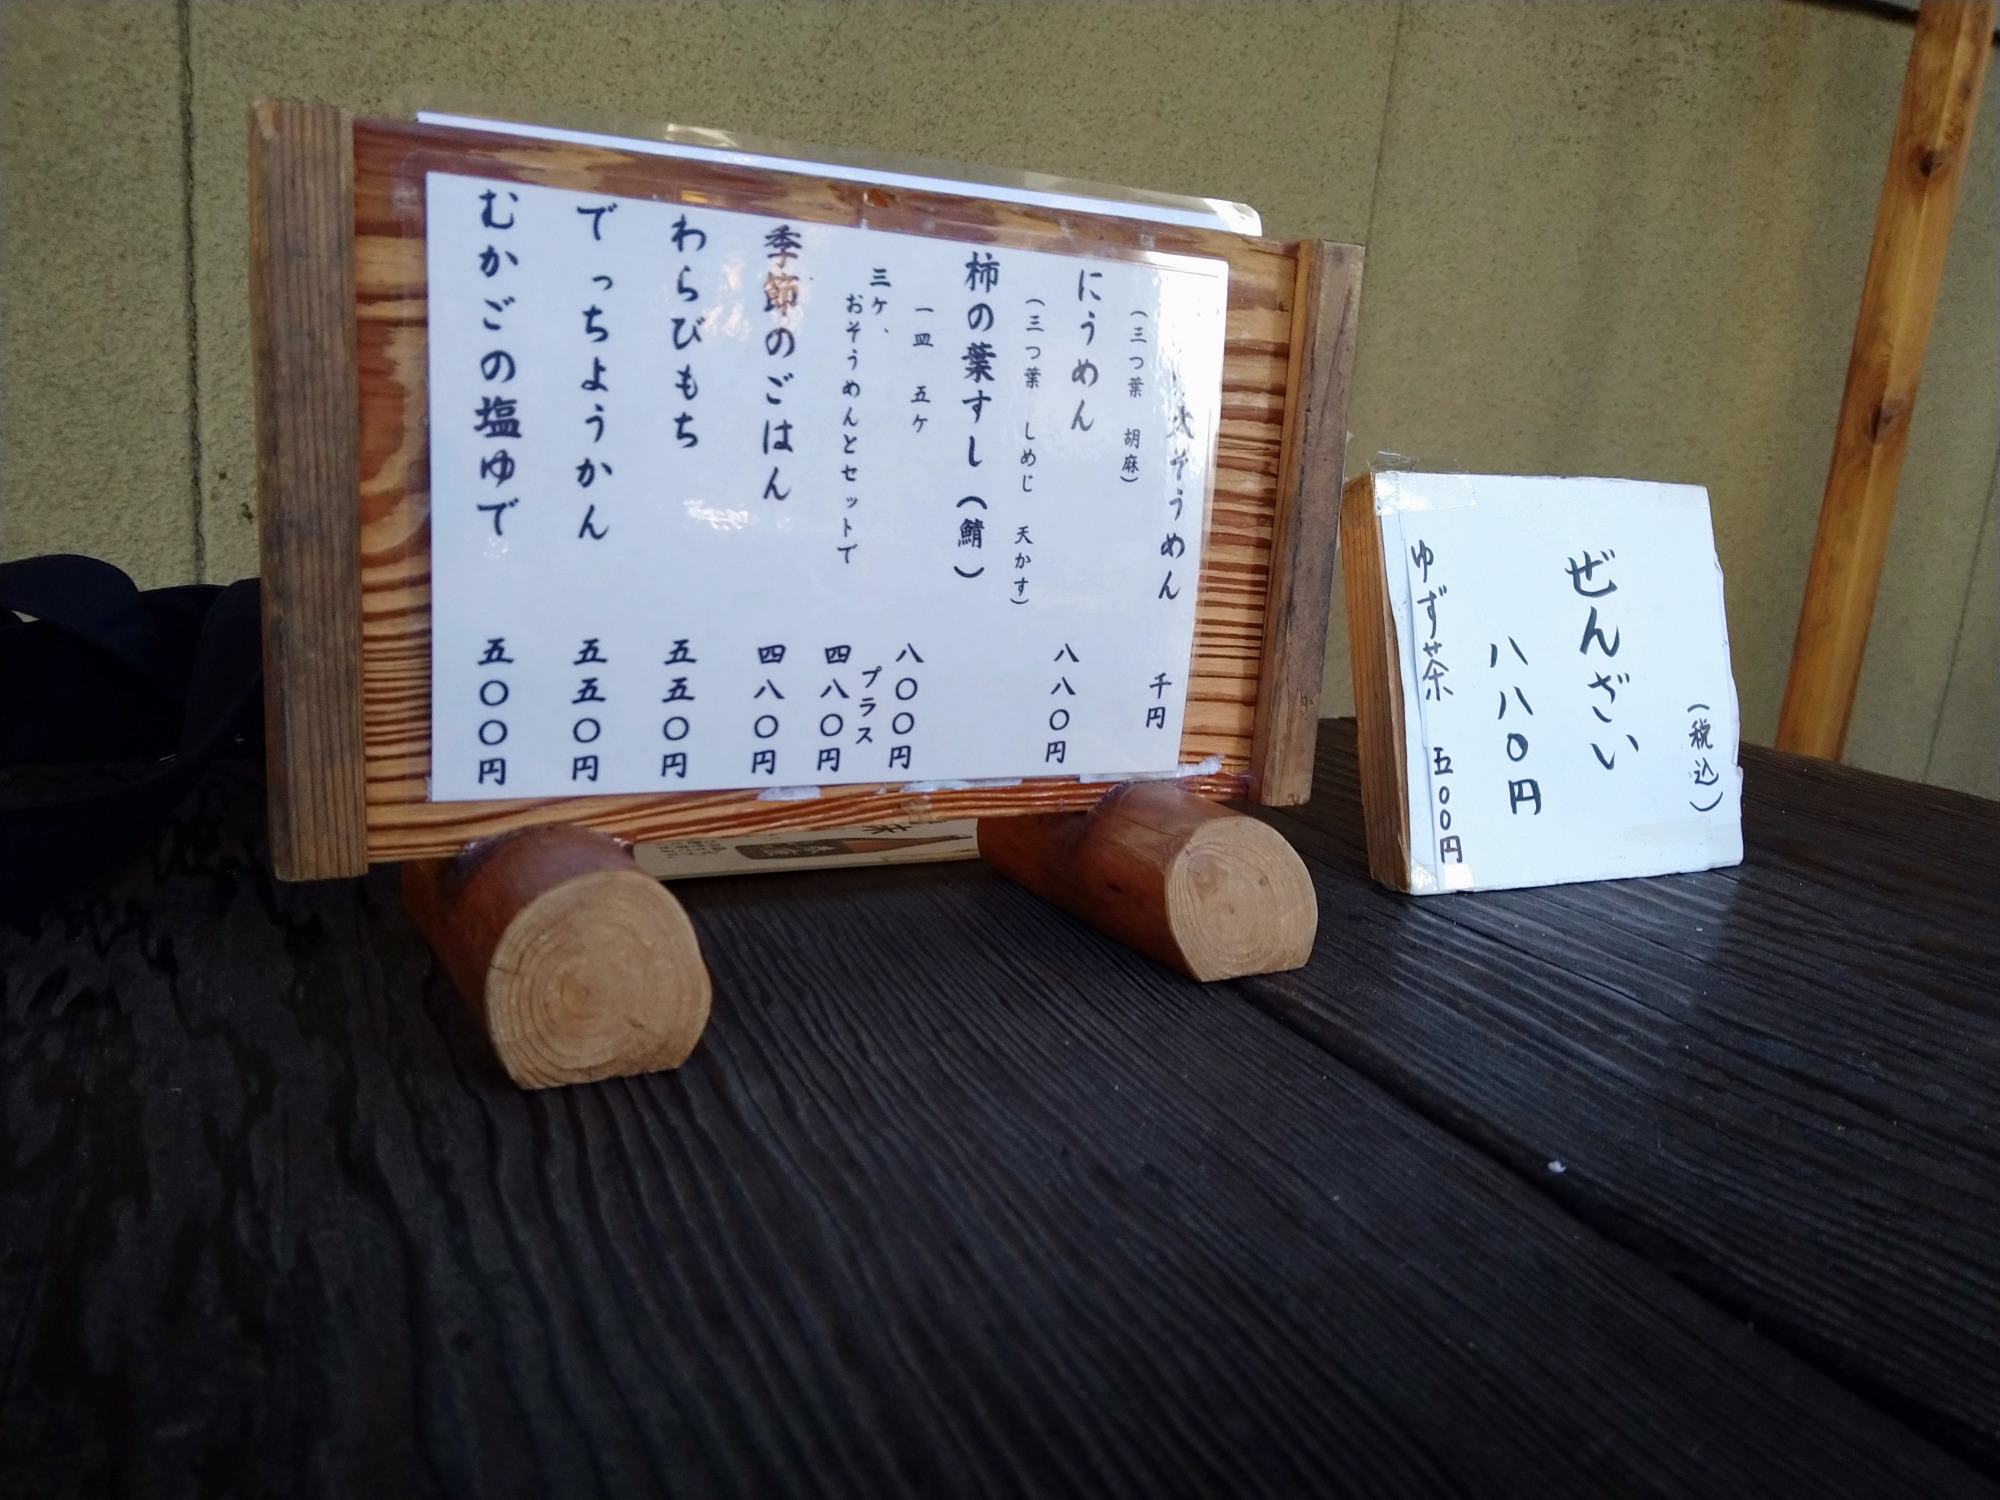 太そうめん 千円
（三つ葉 胡麻）
にうめん 八八〇円
（三つ葉 しめじ 天かす）
柿の葉すし（鯖）
一皿 五ケ 八〇〇円
三ケ、 プラス
おそうめんとセットで 四八〇円
季節のごはん 四八〇円
わらびもち 五五〇円
でっちようかん 五五〇円
むかごの塩ゆで 五〇〇円
（税込）
ぜんざい
八八〇円
ゆず茶 五〇〇円